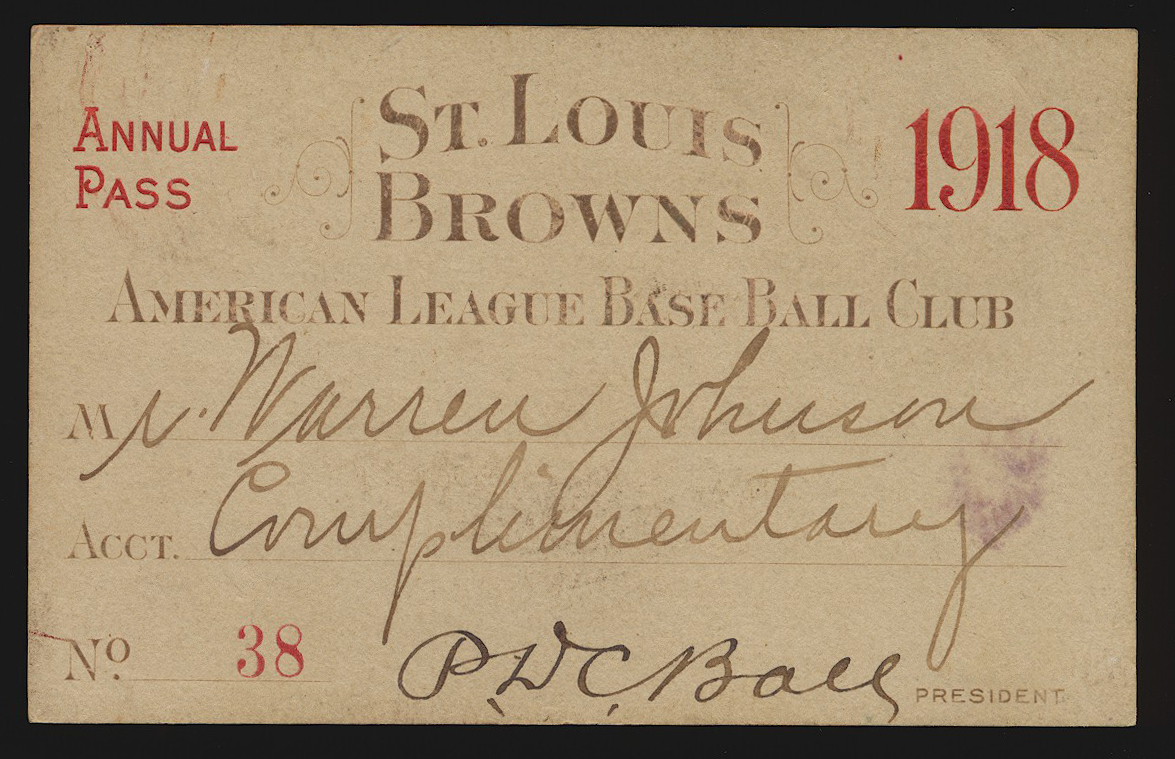 ANNUAL PASS
ST. LOUIS BROWNS
1918
AMERICAN LEAGUE BASE BALL CLUB
Mr. Warren Johnson
ACCT. Complimentary
No. 38
P.D.C. Ball PRESIDENT